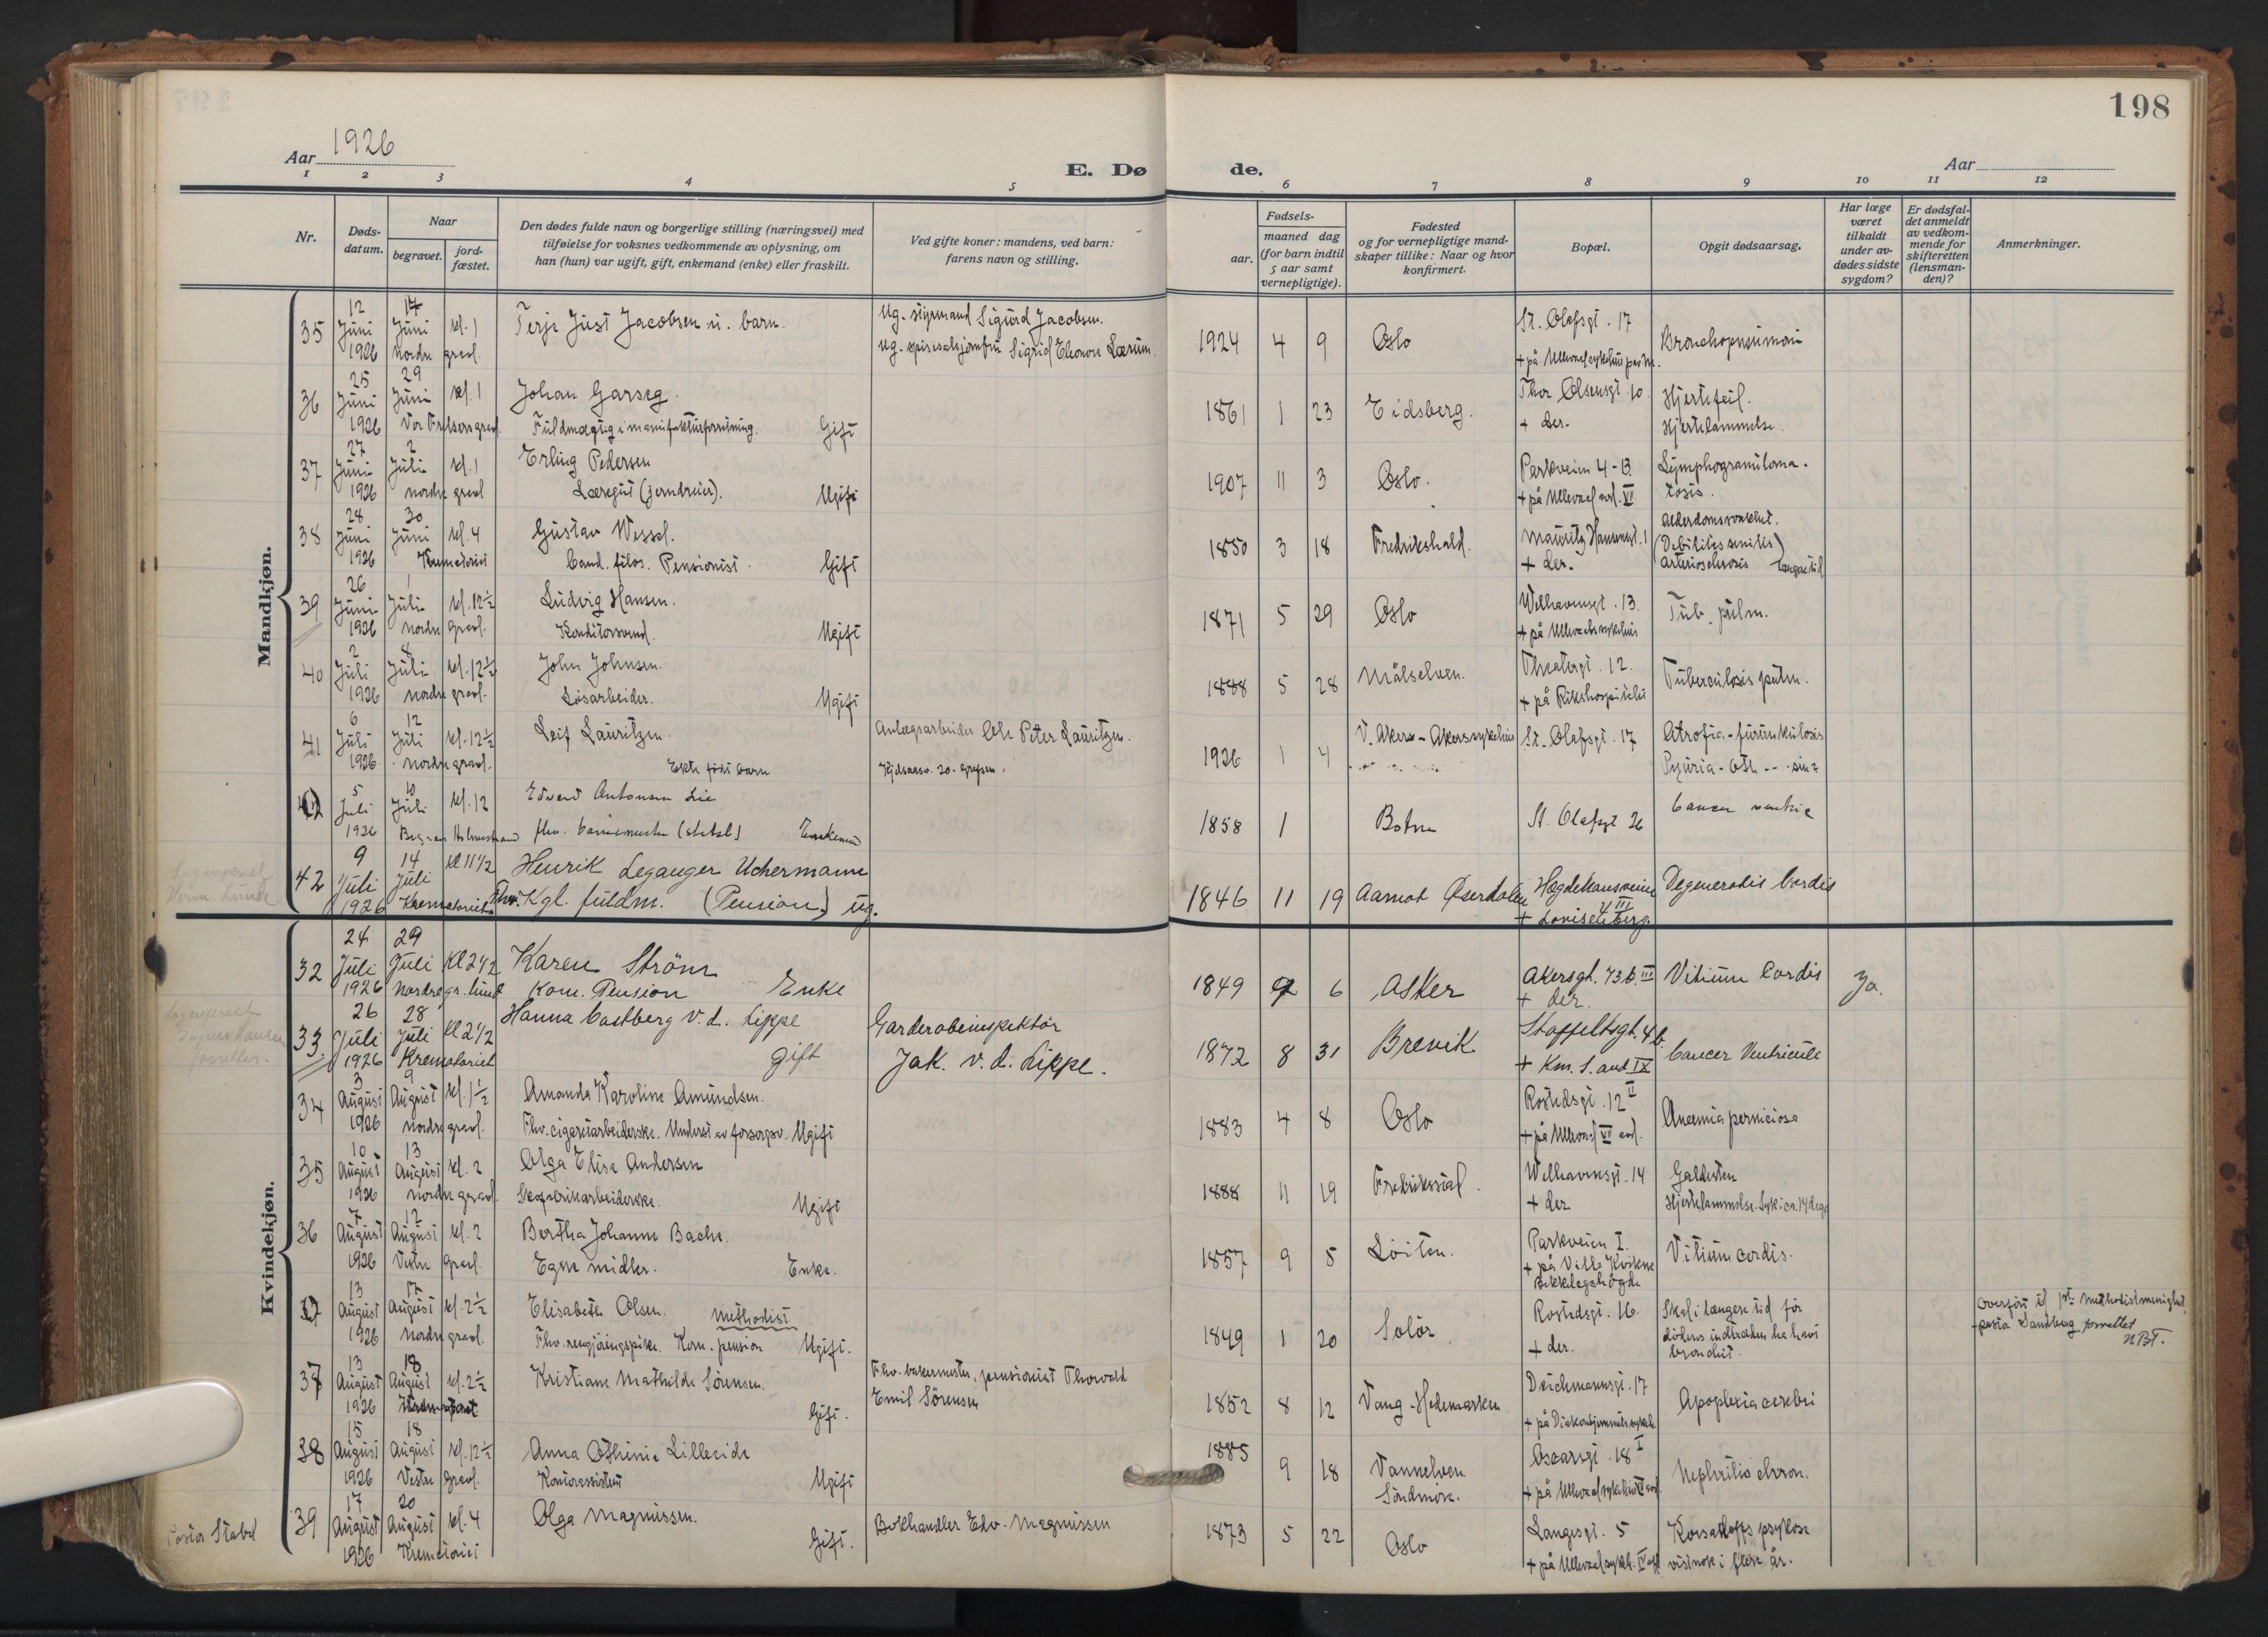 198
Aar 1926
E. Døde.
Aar
1 2 3 4 5 6 7 8 9 10 11 12
Nr.
Døds-datum.
Naar
begravet.
jord-fæstet.
Den dødes fulde navn og borgerlige stilling (næringsvei) med
tilføielse for voksnes vedkommende av oplysning, om
han (hun) var ugift, gift, enkemand (enke) eller fraskilt.
Ved gifte koner: mandens, ved barn:
farens navn og stilling.
Fødsels-
aar.
maaned dag
(for barn indtil
5 aar samt
vernepligtige).
Fødested
og for vernepligtige mand-
skaper tillike: Naar og hvor
konfirmert.
Bopæl.
Opgit dødsaarsag.
Har læge
været
tilkaldt
under av-
dødes sidste
sygdom?
Er dødsfal-
det anmeldt
av vedkom-
mende for
skifteretten
(lensman-
den)?
Anmerkninger.
Mandkjøn.
35 12 Juni 1926 14 Juni kl. 1 nordre gravl.
Terje Just Jacobsen u. barn.
Ug. styrmand Sigurd Jacobsen.
Ug. spisesalsjomfru Sigrid Eleonore Lærum.
1924 4 9 Oslo
St. Olafsgt. 17
Bronchopneumoni
36 25 Juni 1926 29 Juni kl. 1 Vor Frelsers gravl.
Johan Garseg.
Fuldmægtig i manufakturforretning. Gift
1861 1 23 Eidsberg.
Thor Olsensgt. 10
+ der.
Hjertefeil.
Hjertelammelse
37 27 Juni 1926 2 Juli kl. 1 nordre gravl
Erling Pedersen
Læregut (jerndreier). Ugift
1907 11 3 Oslo.
Parkveien 4-B
+ på Ullevaal avd. VII
Lymphogranuloma-
tosis.
38 28 Juni 1926 30 Juni kl. 4 Krematoriet
Gustav Wessel.
Cand. filos. Pensionist. Gift
1850 3 18 Fredrikshald.
Mauritz Hansensgt. 1
+ der.
Alderdomssvakhet.
(Debilitas senilis)
Arteriosclerosis længere tid
39 26 Juni 1926 1 Juli kl. 12½ nordre gravl.
Ludvig Hansen.
Konditorsvend. Ugift
1871 5 29 Oslo
Welhavensgt. 13.
+ på Ullevaal sykehus
Tub. pulm.
40 2 Juli 1926 8 Juli kl. 12½ nordre gravl.
John Johnsen.
Løsarbeider. Ugift
1888 5 28 Målselven.
Theatergt. 12.
+ på Rikshospitalet
Tuberculosis pulm.
41 6 Juli 1926 12 Juli kl. 12½ nordre gravl.
Leif Lauritzen.
Ekte født barn
Anlægsarbeider Ole Peter Lauritzen.
Kjelsaasv. 20. Grefsen.
1926 1 4 V. Aker - Akers sykehus
St. Olafsgt. 17
Atrofia - furunkulosis
Pyuria
5 Juli 1926 10 Juli kl. 12
Edvard Antonsen Lie
Enkemand
1858 1 Botne
St. Olafsgt 26
Cancer ventric
42 9 Juli 1926 14 Juli Kl 11½ Krematoriet
Henrik Leganger Uchermann
Fhv. Kgl. fuldm. (Pension) ug.
1846 11 19 Aamot Østerdalen
Hægdehaugsveien
4 III
+ Lovisenberg.
Degeneratis Cordis
Kvindekjøn.
32 24 Juli 1926 29 Juli Kl 2½ Nordre gr. lund
Karen Strøm
Kom. Pension Enke
1849 9 6 Asker
Akersgt. 73 b. III
+ der.
Vitium Cordis
Ja.
33. 26 Juli 1926 28 Juli Kl 2½ Krematoriet
Hanna Castberg v. d. Lippe
gift
Garderobeinspektør
Jak. v. d. Lippe.
1872 8 31 Brevik
Stoffeltsgt. 4 b.
+ Km. S. avd. IX
Cancer Ventriculi
34 3 August 1926 9 August kl. 1½ nordre gravl.
Amanda Karoline Amundsen.
Fhv. cigaretarbeiderske. Underst. av forsorgsv. Ugift
1883 4 8 Oslo
Rostedsgt. 12 II
+ på Ullevaal VII avd.
Anæmia perniciosa
35 10 August 1926 13 August kl. 2 nordre gravl.
Olga Elisa Andersen
Skofabrikarbeiderske. Ugift
1888 11 19 Fredrikstad.
Welhavensgt. 14
+ der
Galdesten
Hjertelammelse. Syk i ca. 14 dage
36 7 August 1926 12 August kl. 2 Vestre gravl.
Bertha Johanne Bache.
Egne midler. Enke.
1857 9 5 Løiten.
Parkveien I.
+ på Villa Kvikne
Bekkelagshøgda
Vitium cordis.
13 August 1926 17 August kl. 2½ nordre gravl.
Elisabeth Olsen. Methodist
Fhv. rengjøringspike. Kom. pension Ugift.
1849 1 20 Solør
Rostedsgt. 16.
+ der.
Skal i længere tid før
dødens indtræden ha havt
bronchit.
Overført til 1ste Methodistmenighet
pastor Sandberg forrettet
NBT.
37 13 August 1926 18 August kl. 2½
Kristiane Mathilde Sørensen.
Gift.
Fhv. bakermester, pensionist Thorvald
Emil Sørensen
1852 8 12 Vang - Hedemarken
Deichmannsgt. 17
+ på Diakonhjemmets sykeh.
Apoplexia cerebri
38 15 August 1926 18 August kl. 12½ Vestre gravl.
Anna Othinie Lilleeide
Kontorassistent Ugift
1885 9 18 Vannelven
Søndmøre.
Oscarsgt. 18 I
+ på Ullevaal sykehus VI avd.
Nephritis chron.
39 17 August 1926 20 August kl. 4 Krematoriet
Olga Magnussen.
Gift.
Bokhandler Edv. Magnussen
1873 5 22 Oslo
Langesgt. 5
+ på Ullevaal sykeh. IV avd
Korsakoffs psykose
visstnok i flere år.
Pastor Stabel